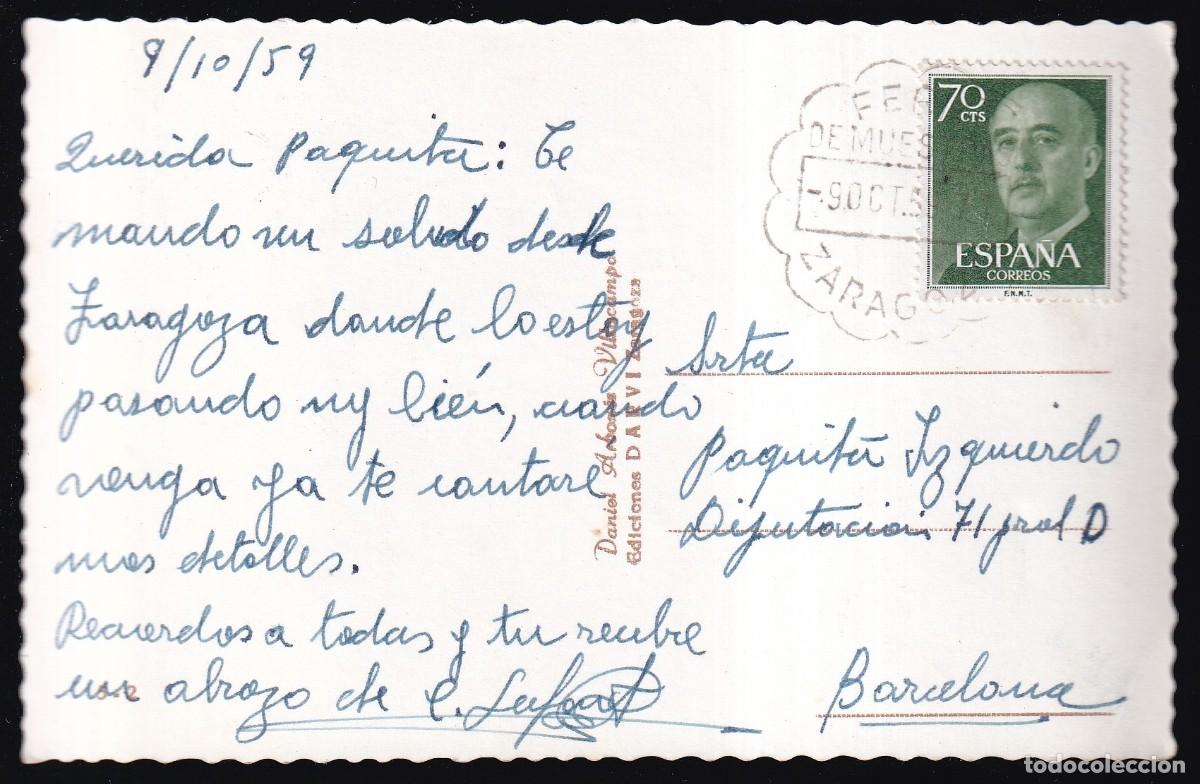 9/10/59
Querida Paquita: Te
mando un saludo desde
Zaragoza donde lo estoy
pasando my bién, cuando
venga ya te contare
mas detalles.
Recuerdos a todas y tu recibe
un abrazo de C.
Daniel Arbonés Villacampa
Ediciones DARVI Zaragoza
FER
DE MUES
-9.OCT.59
ZARAGOZA
70
CTS
ESPAÑA
CORREOS
F.N.M.T.
Srta
Paquita Izquierdo
Diputacion 71 pral D
Barcelona
todocoleccion